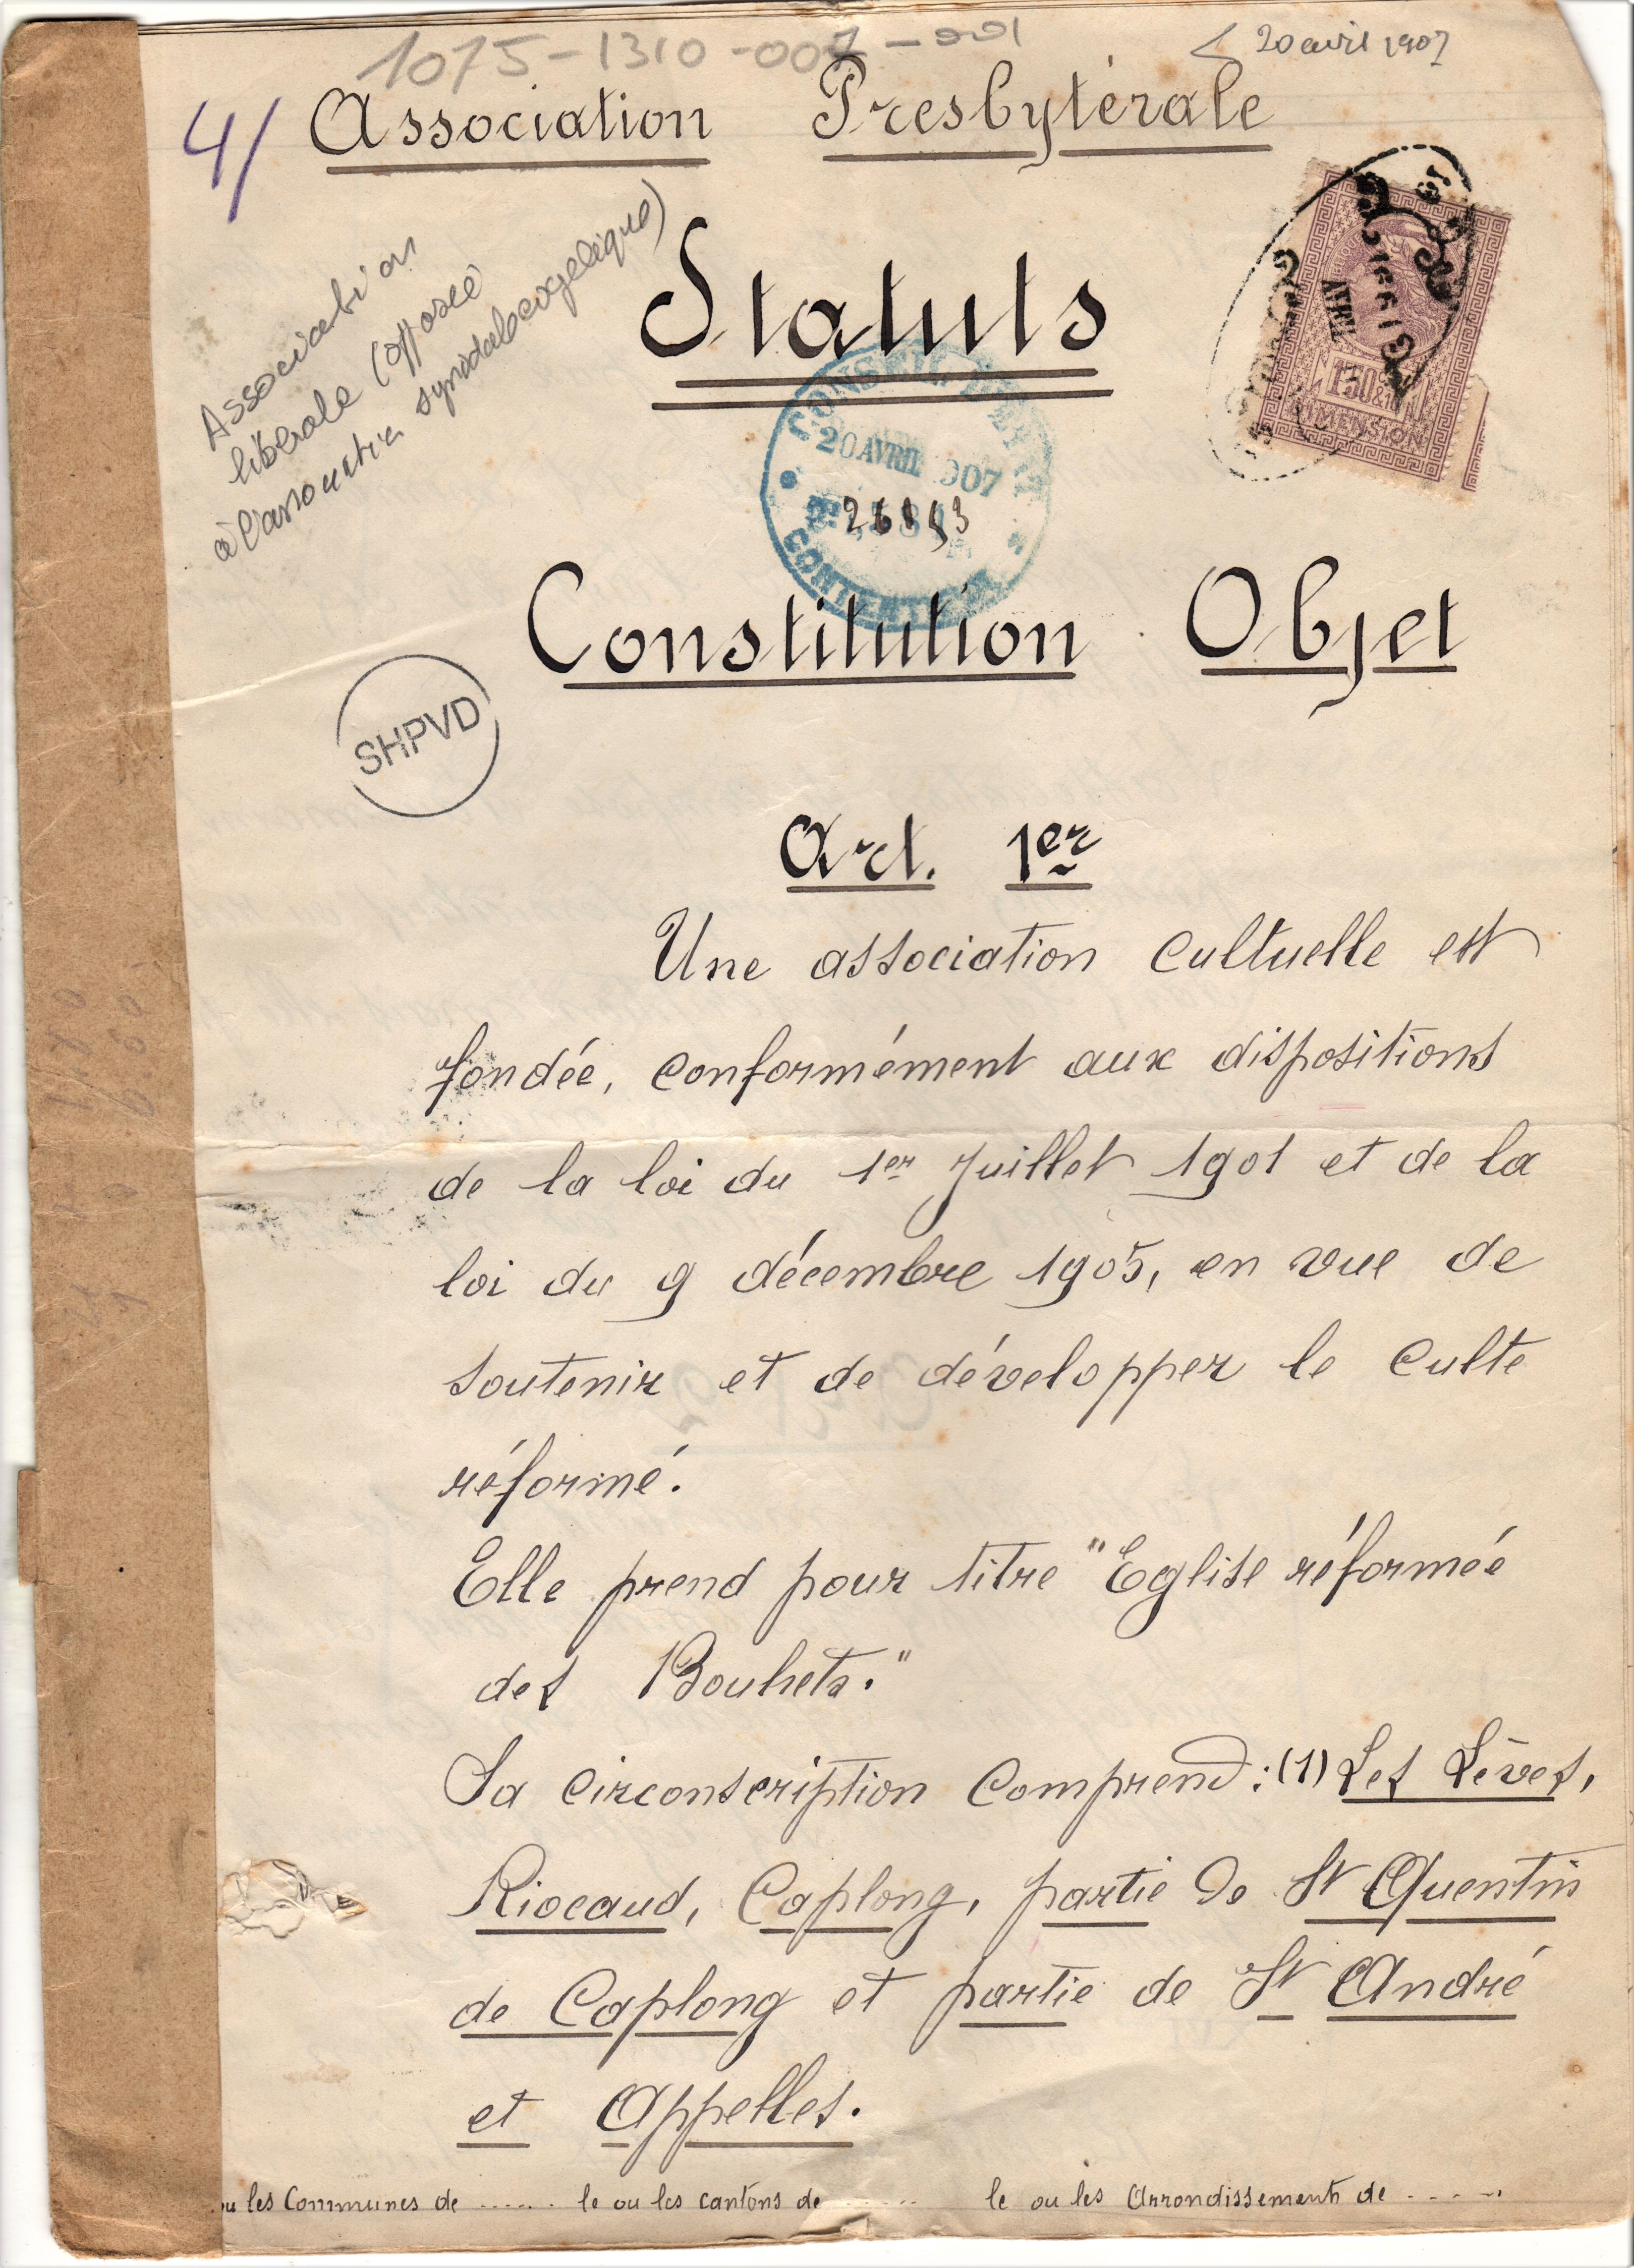 1075-1310-007-001
< 20 avril 1907
4/ Association Presbytérale
Association
libérale (opposée
à l'association synodale évangélique)
Statuts
CONSEIL D'ETAT
20 AVRIL 907
26143
CONTENTIEUX
150
DIMENSION
Constitution Objet
SHPVD
Art. 1er
Une association cultuelle est
fondée, conformément aux dispositions
de la loi du 1er Juillet 1901 et de la
loi du 9 décembre 1905, en vue de
soutenir et de développer le culte
réformé.
Elle prend pour titre "Eglise réformée
des Bouhets."
Sa circonscription comprend: (1) Les Lèves,
Riocaud, Caplong, partie de St Quentin
de Caplong et partie de St André
et Appelles.
ou les Communes de ...... le ou les cantons de ...... le ou les Arrondissements de ......